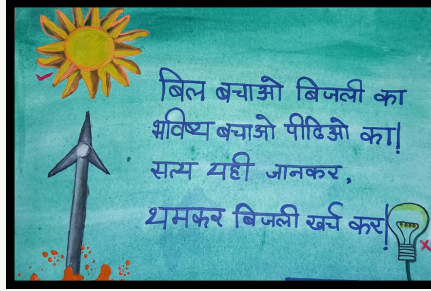 बिल बचाओ बिजली का
भविष्य बचाओ पीढिओ का!
सत्य यही जानकर,
थमकर बिजली खर्च कर!